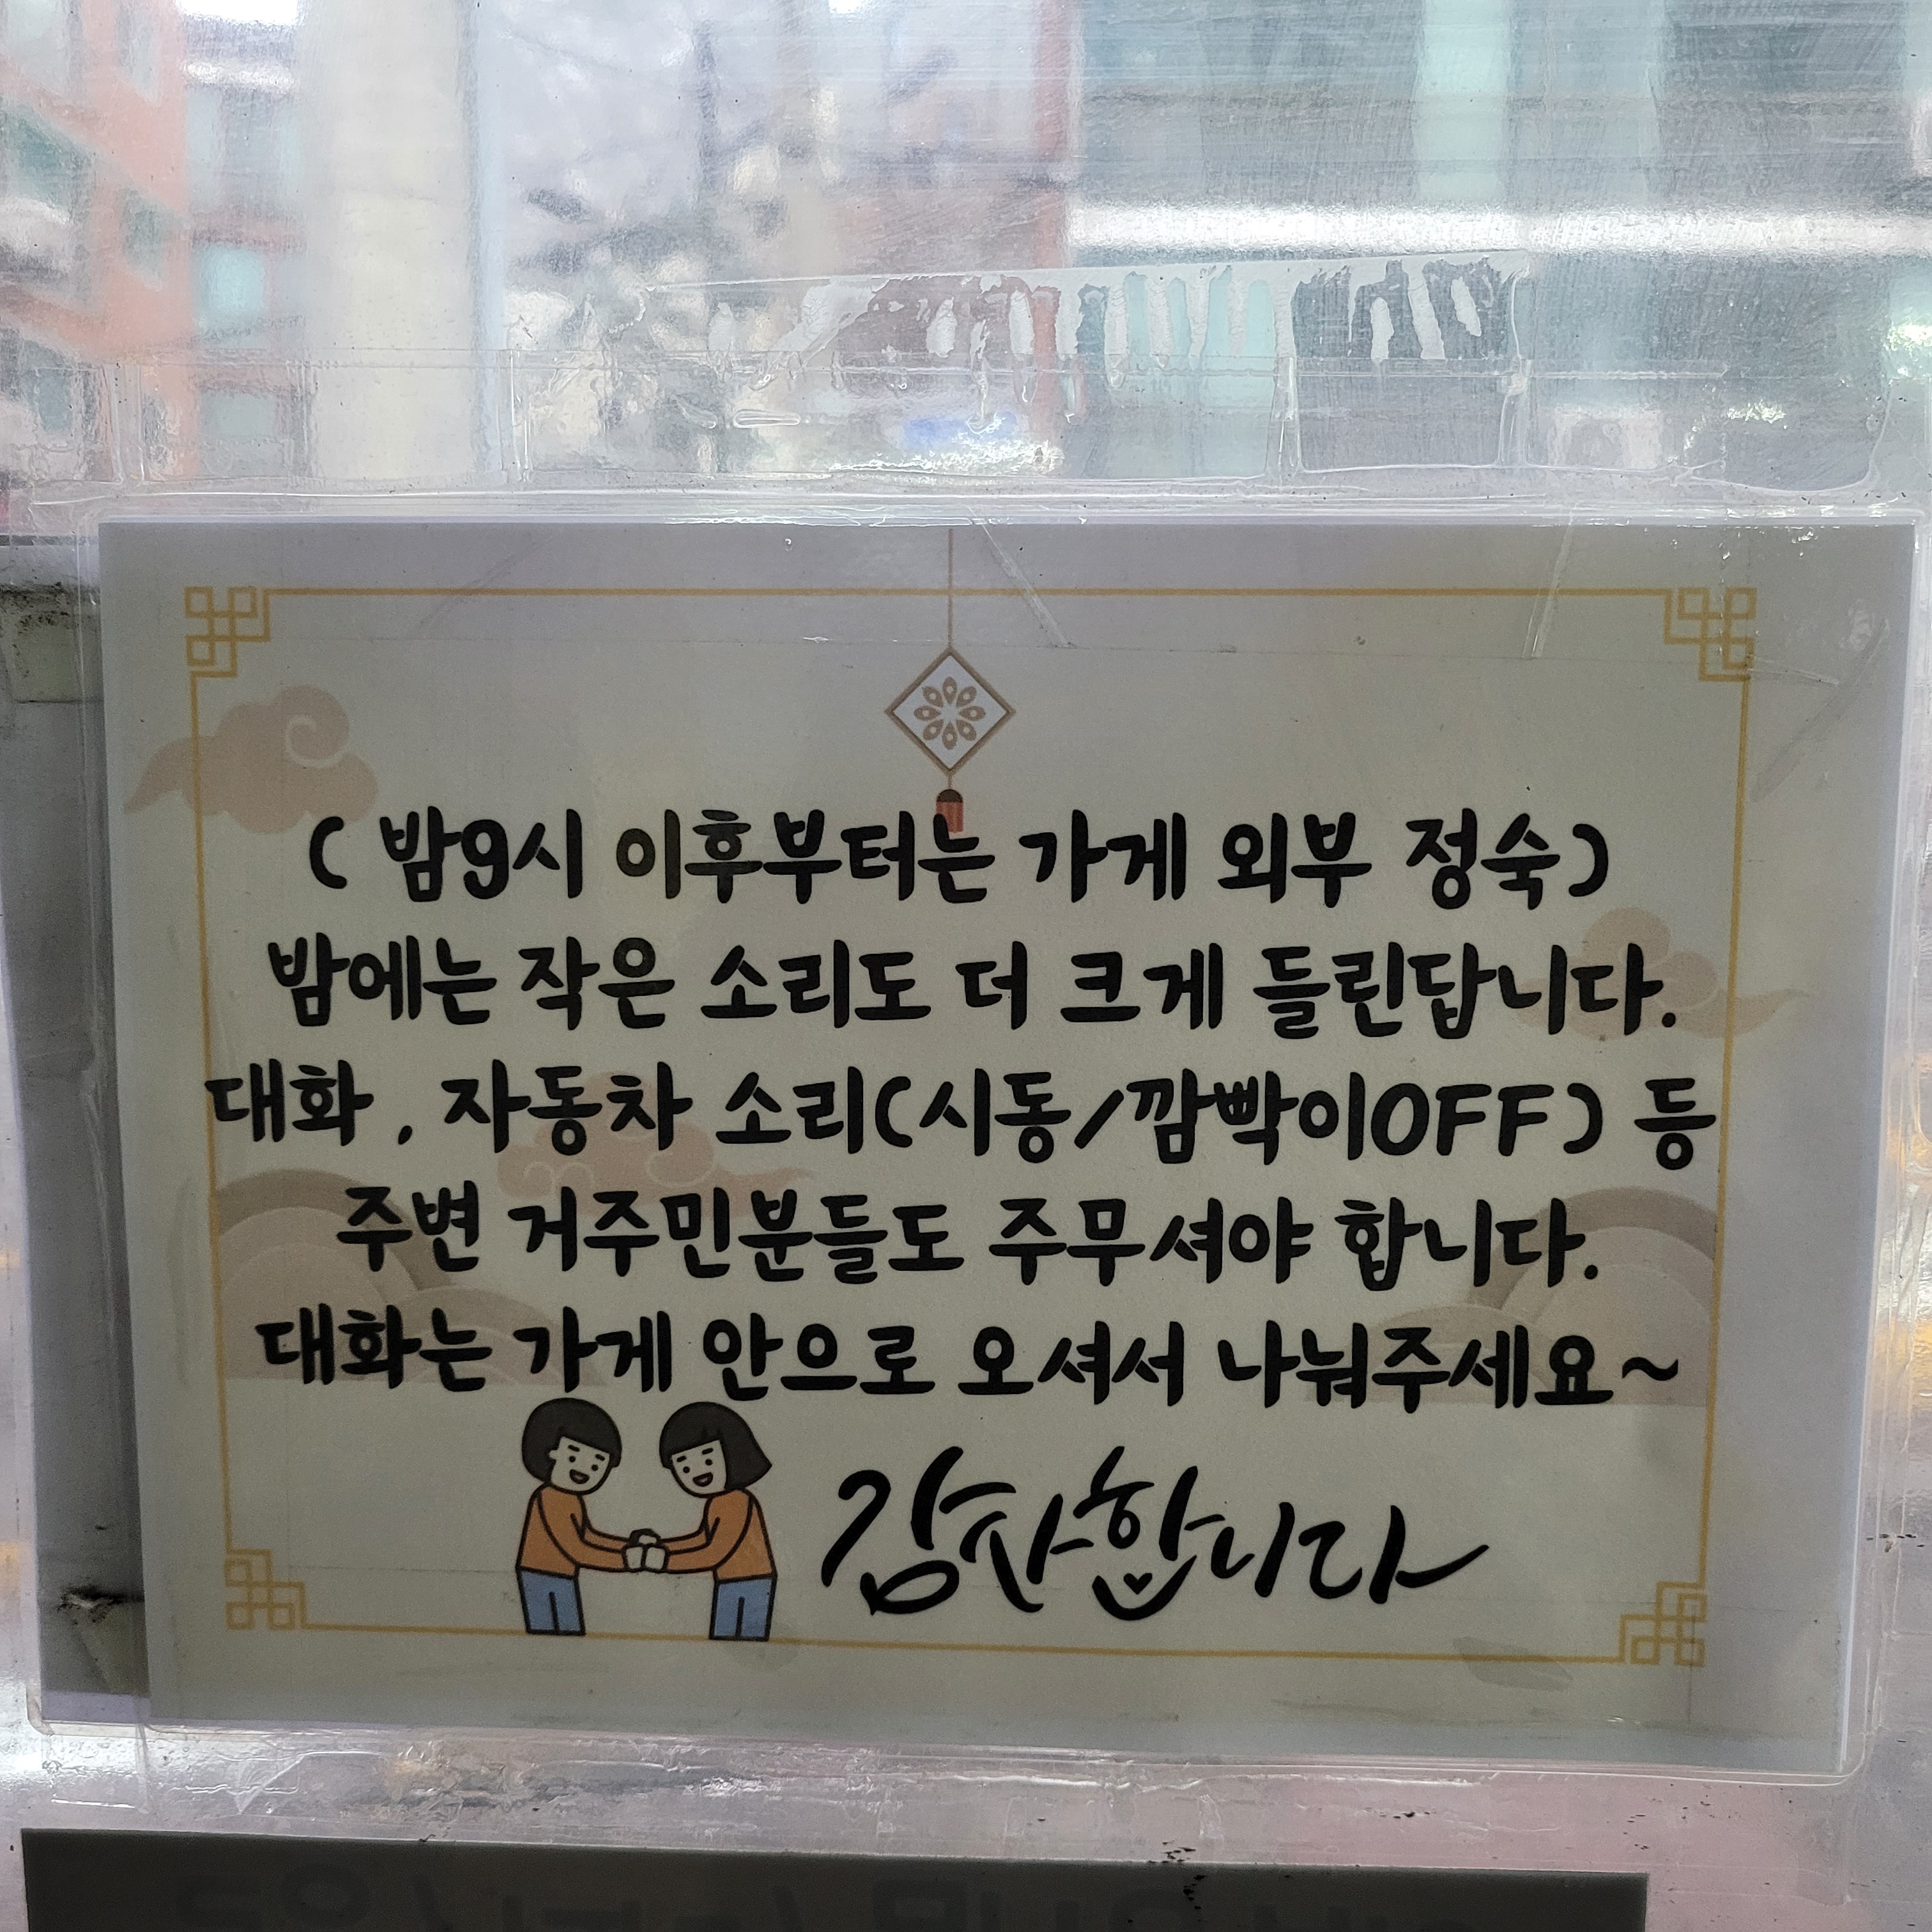 ( 밤9시 이후부터는 가게 외부 정숙)
밤에는 작은 소리도 더 크게 들린답니다.
대화 , 자동차 소리(시동/깜빡이OFF) 등
주변 거주민분들도 주무셔야 합니다.
대화는 가게 안으로 오셔서 나눠주세요~
감사합니다